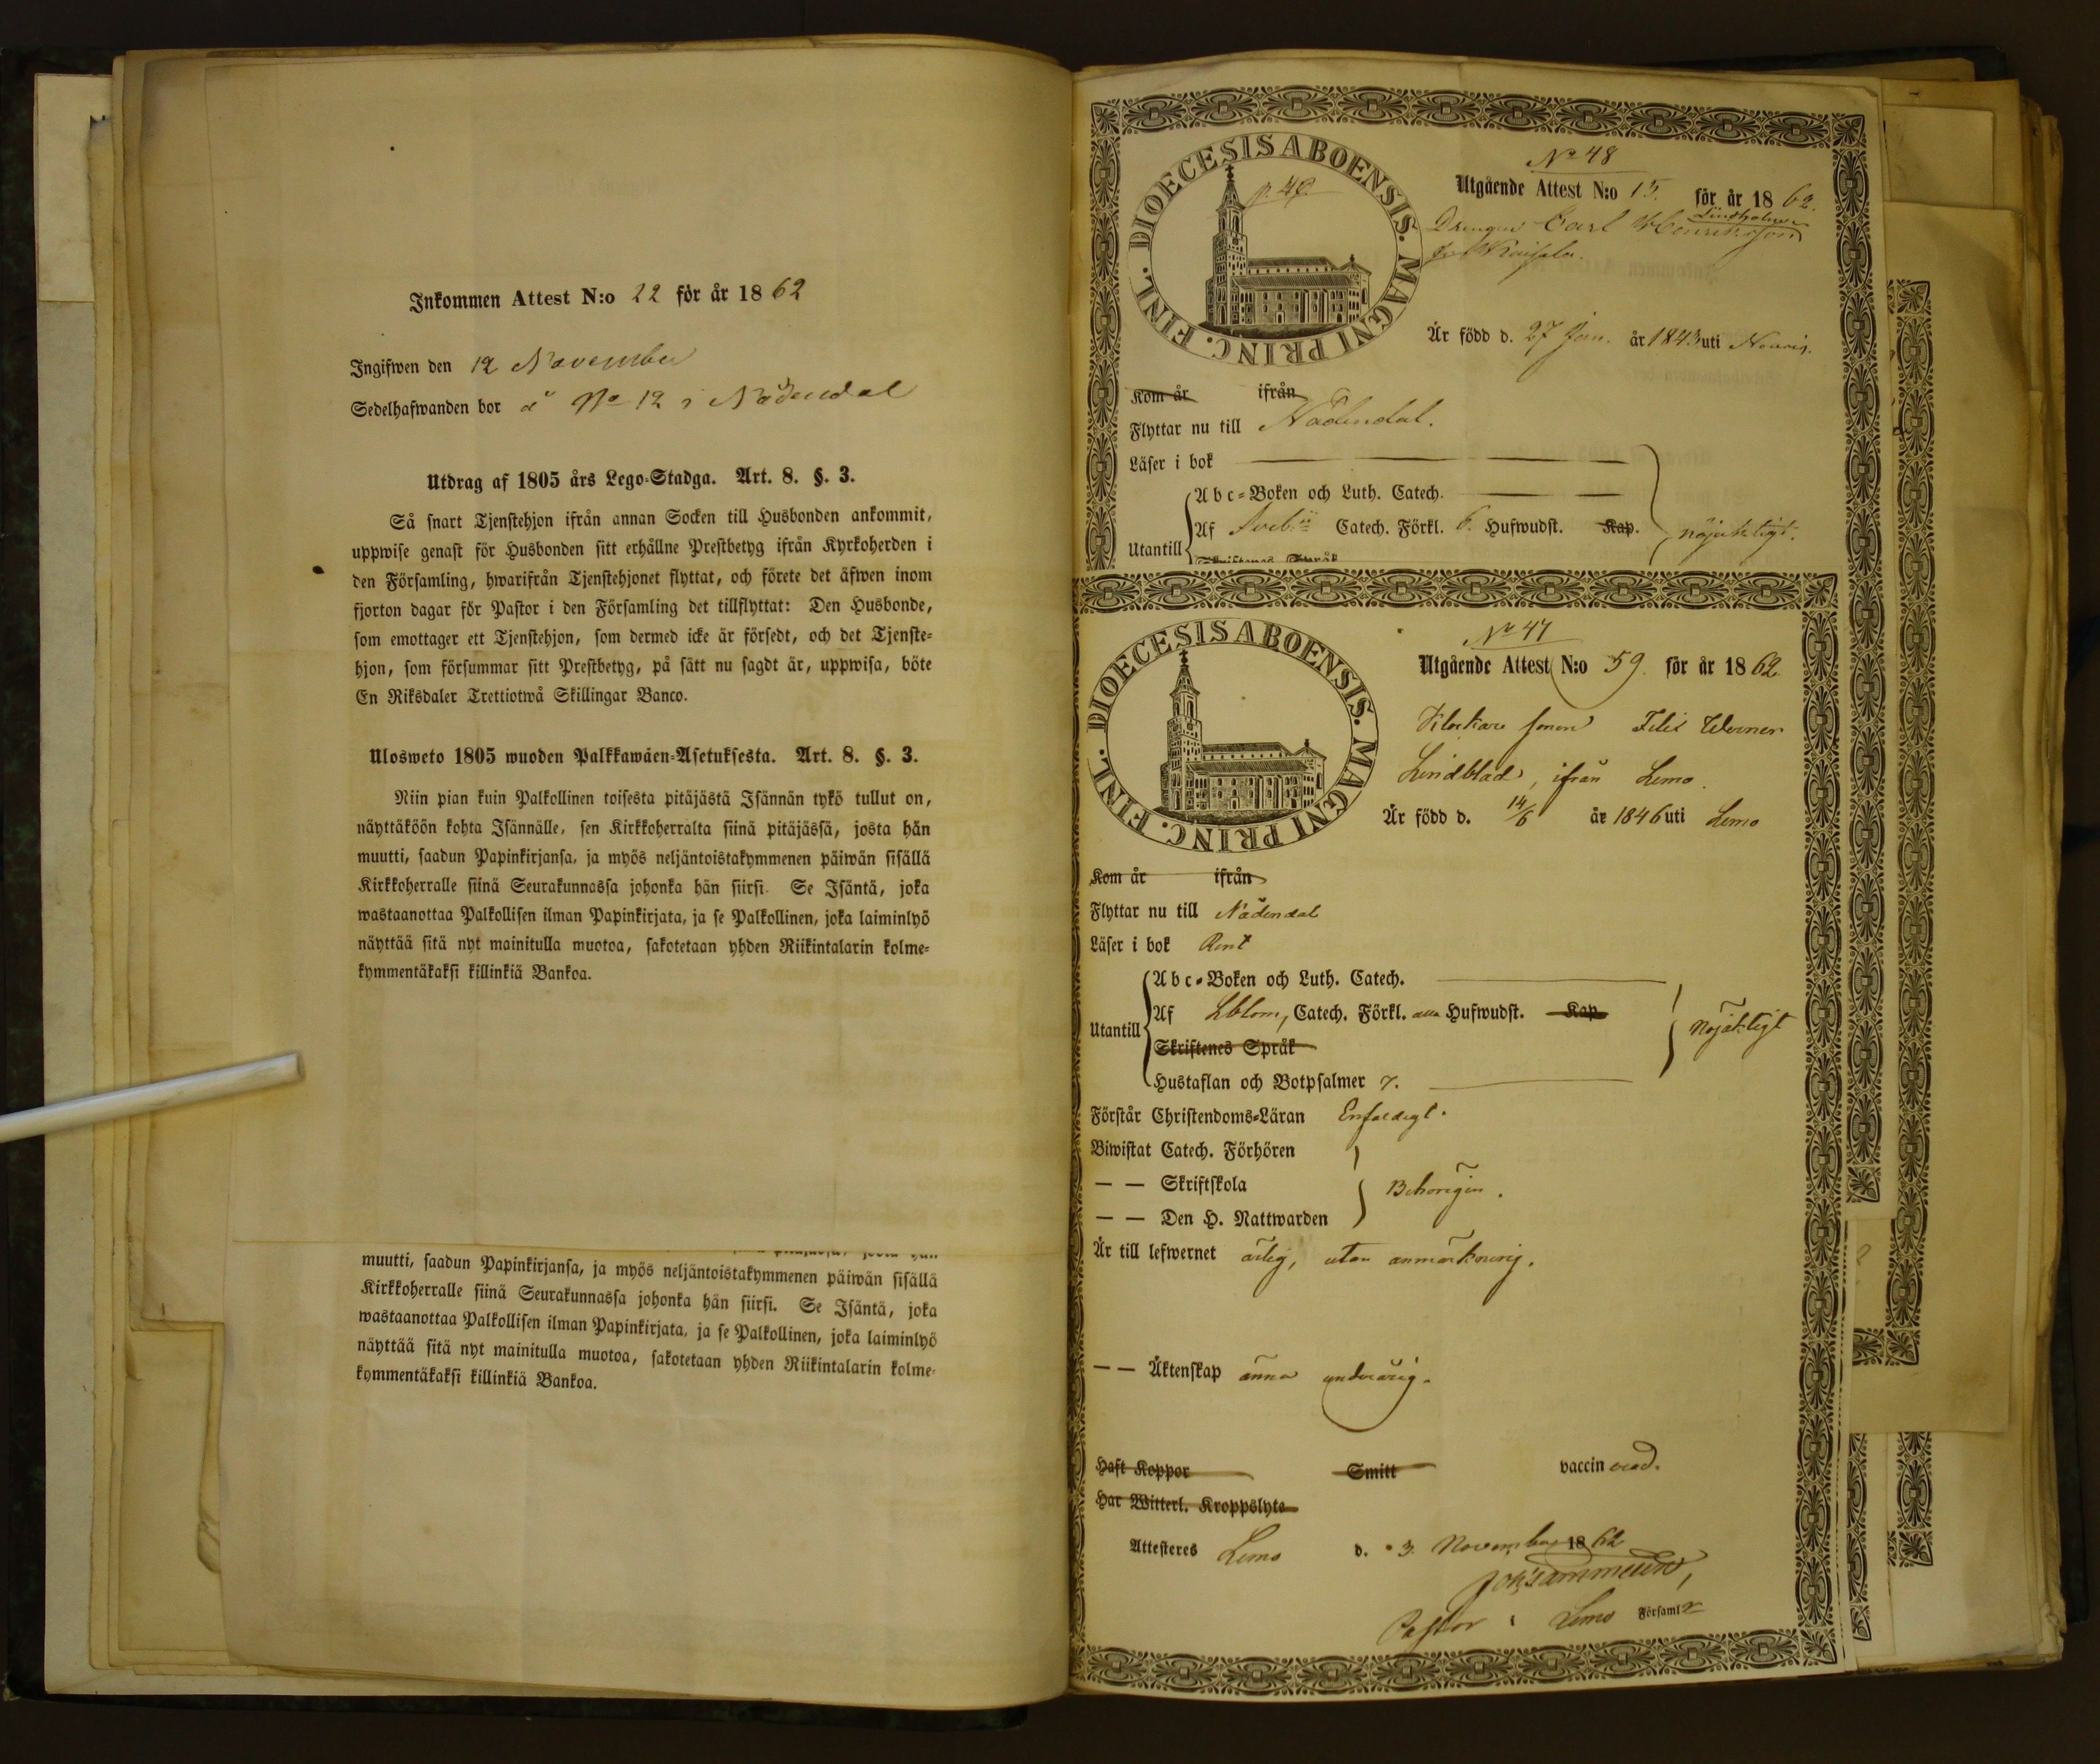 Inkommen Attest N:o 22 för år 1862
Ingifwen den 12 November
Sedelhafwanden bor å No 12 i Nådendal
Utdrag af 1805 års Lego-Stadga. Art. 8. §. 3.
Så snart Tjenstehjon ifrån annan Socken till Husbonden ankommit,
uppwise genast för Husbonden sitt erhållne Prestbetyg ifrån Kyrkoherden i
den Församling, hwarifrån Tjenstehjonet flyttat, och förete det äfwen inom
fjorton dagar för Pastor i den Församling det tillflyttat: Den Husbonde,
som emottager ett Tjenstehjon, som dermed icke är försedt, och det Tjenste-
hjon, som försummar sitt Prestbetyg, på sätt nu sagdt är, uppwisa, böte
En Riksdaler Trettiotwå Skillingar Banco.
Ulosweto 1805 wuoden Palkkawäen-Asetuksesta. Art. 8. §. 3.
Niin pian kuin Palkollinen toisesta pitäjästä Isännän tykö tullut on,
näyttäköön kohta Isännälle, sen Kirkkoherralta siinä pitäjässä, josta hän
muutti, saadun Papinkirjansa, ja myös neljäntoistakymmenen päiwän sisällä
Kirkkoherralle siinä Seurakunnassa johonka hän siirsi. Se Isäntä, joka
wastaanottaa Palkollisen ilman Papinkirjata, ja se Palkollinen, joka laiminlyö
näyttää sitä nyt mainitulla muotoa, sakotetaan yhden Riikintalarin kolme-
kymmentäkaksi killinkiä Bankoa.
muutti, saadun Papinkirjansa, ja myös neljäntoistakymmenen päiwän sisällä
Kirkkoherralle siinä Seurakunnassa johonka hän siirsi. Se Isäntä, joka
wastaanottaa Palkollisen ilman Papinkirjata, ja se Palkollinen, joka laiminlyö
näyttää sitä nyt mainitulla muotoa, sakotetaan yhden Riikintalarin kolme-
kymmentäkaksi killinkiä Bankoa.
DIOECESIS ABOENSIS. MAGNI PRINC. FINL.
No 48
Utgående Attest N:o 15. för år 1862.
Lindholm
Drengen Carl Henriksson
Är född d. 27 Jan. år 1843 uti
Kom år ifrån
Flyttar nu till Nådendal.
Läser i bok
Abc-Boken och Luth. Catech.
Utantill Af Sveb. Catech. Förkl. 6. Hufwudst. Kap. nöjaktigt.
Skriftenes Språk
DIOECESIS ABOENSIS. MAGNI PRINC. FINL.
No 47
Utgående Attest N:o 59. för år 1862.
Klockare sonen Felix Werner
Lindblad, ifrån Lemo.
Är född d. 14/6 år 1846 uti Lemo
Kom år ifrån
Flyttar nu till Nådendal
Läser i bok Rent
Abc-Boken och Luth. Catech.
Utantill Af Lblom, Catech. Förkl. alla Hufwudst. Kap. nöjaktigt
Skriftenes Språk
Hustaflan och Botpsalmer 7.
Förstår Christendoms-Läran Enfaldigt.
Biwistat Catech. Förhören
— — Skriftskola Behörigen.
— — Den H. Nattwarden
Är till lefwernet ärlig, utan anmärkning.
— — Äktenskap ännu underårig.
Haft Koppor Smitt vaccinerad.
Har Witterl. Kroppslyte
Attesteres Lemo d. 3. November 1862
Pastor i Lemo Församl.